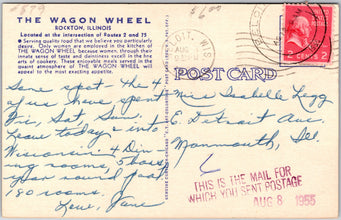 THE WAGON WHEEL
ROCKTON, ILLINOIS
Located at the intersection of Routes 2 and 75
Serving quality food that we believe you particularly
desire. Only women are employed in the kitchen of
THE WAGON WHEEL because women, through their
innate sense of taste and daintiness excell in the fine
arts of cookery. These enjoyable meals served in the
quaint atmosphere of THE WAGON WHEEL will
appeal to the most exacting appetite.
POST CARD
2 CENTS 2
Same spot the 4
of us have spent
Fri, Sat, Sun.
Leave today & into
Wisconsin. 4 Din-
ing rooms, 5
year round
180 rooms.
Love, Jane
Miss Isabelle Legg
E. Detroit Ave.
Monmouth, Ill.
THIS IS THE MAIL FOR
WHICH YOU SENT POSTAGE
AUG 8 1955